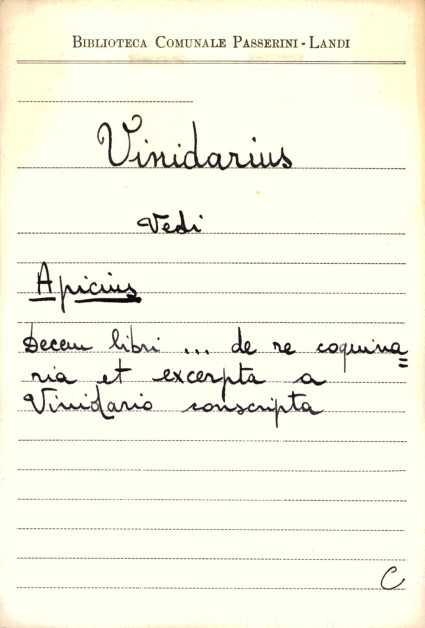 BIBLIOTECA COMUNALE PASSERINI - LANDI
Vinidarius
Vedi
Apicius
Decem libri ... de re coquina=
ria et excerpta a
Vinidario conscripta
C